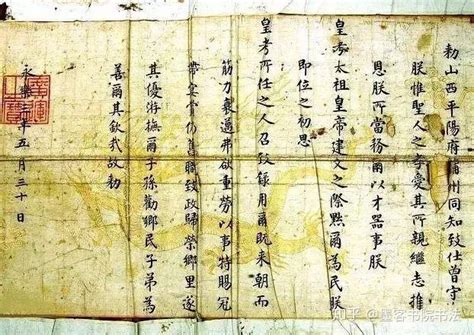 勑山西平陽府蒲州同知致仕曾守
朕惟聖人之孝愛其所親繼志推
恩朕所當務爾以才器事朕
皇考太祖皇帝建文之際黜爾為民朕
即位之初思
皇考所任之人召致録用爾既来朝而
筋力衰邁弗欲重勞以事特賜冠
帶宴賚仍舊職致政歸榮鄉里遂
其優游撫爾子孫勸鄉民子弟為
善爾其欽哉故勑
永樂年五月三十日
廣運之寶
知乎 @墨客书院书法